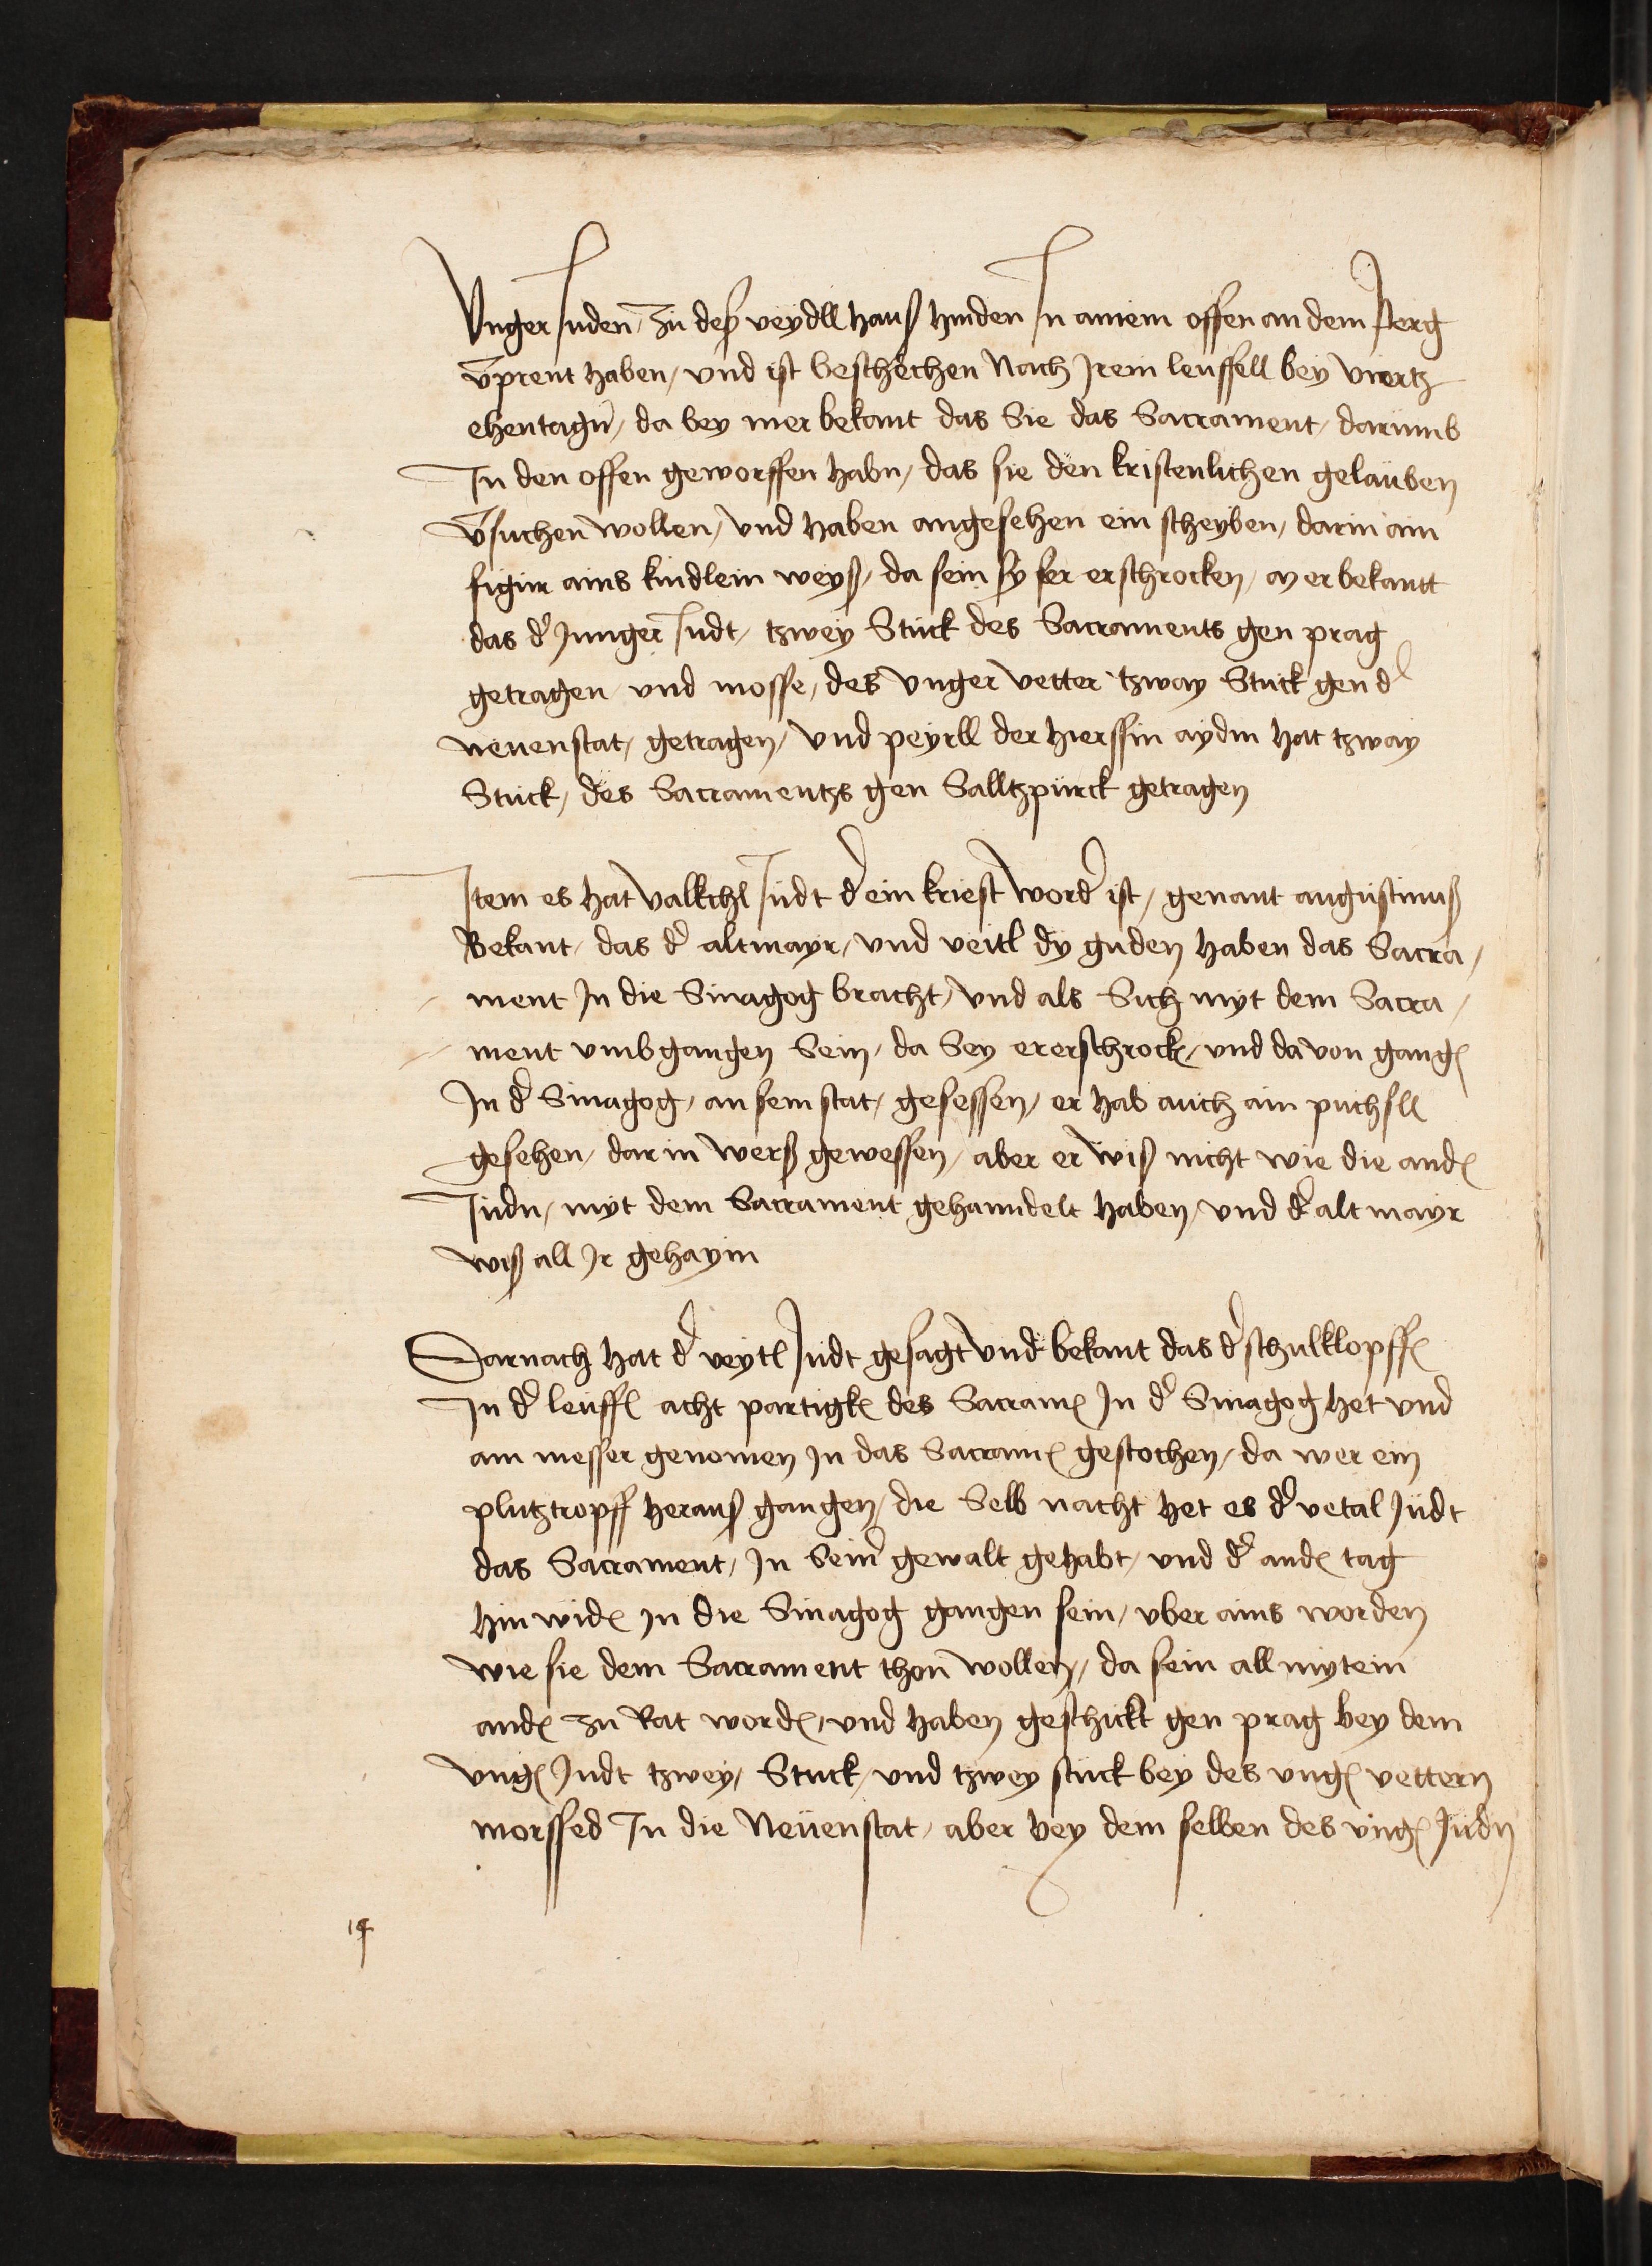 Vnger Juden, zu deß veydll hauß hinden Jn ainem offen an dem perg
v̄prent haben, vnd ist beschechen Nach Jrem leuffell bey viertz
ehentagn̄, da bey mer bekant das Sie das Sacrament, darumb
Jn den offen geworffen habn, das sie den kristenlichen gelauben
v̄suchen wollen, vnd haben angesehen ein scheyben, darin ain
figur ains kindlein weyß, da sein sy ser erschrocken, mer bekantt
das d' Junger Judt, tzwey Stuck des Sacraments gen prag
getragen vnd mosse, des vnger vetter tzway Stuck gen d'
neuenstat, getragen, vnd peyrll der hierssin aydm hat tzway
Stuck, des Sacramentzs gen Salltzpurck getragen
Jtem es hat valkchl Judt d' ein kriest word' ist, genant augustinuß
Bekant, das d' altmayr, vnd veitl dy guden haben das Sacra,
ment Jn die Sinagog bracht, vnd als Sich myt dem Sacra,
ment vmbgangen Sein, da Sey er erschrock, vnd da von gang
Jn d' Sinagog, an sein stat, gesessen, er hab auch ain puchsll
gesehen, dar in werß gewessen, aber er wiß nicht wie die and
Judn, myt dem Sacrament gehanndelt haben, vnd d' alt mayr
wiß all Jr gehaym
Darnach hat d' veytl Judt gesagt vnd bekant das d' schulklopff
Jn d' leuff acht partigk des Sacram Jn d' Sinagog het vnd
ain messer genomen Jn das Sacram gestochen, da wer ein
plutztropff herauß gangen, die Selb nacht het es d' vetal Judt
das Sacrament, Jn Sein' gewalt gehabt, vnd d' and tag
hin wid Jn die Sinagog gangen sein, vber ains worden
wie sie dem Sacrament thon wollen, da sein all mytein
and zu Rat word, vnd haben geschickt gen prag bey dem
vng Judt tzwey, Stuck, vnd tzwey stuck bey des vng vettern
morssed Jn die Neuenstat, aber bey dem selben des vng Judn